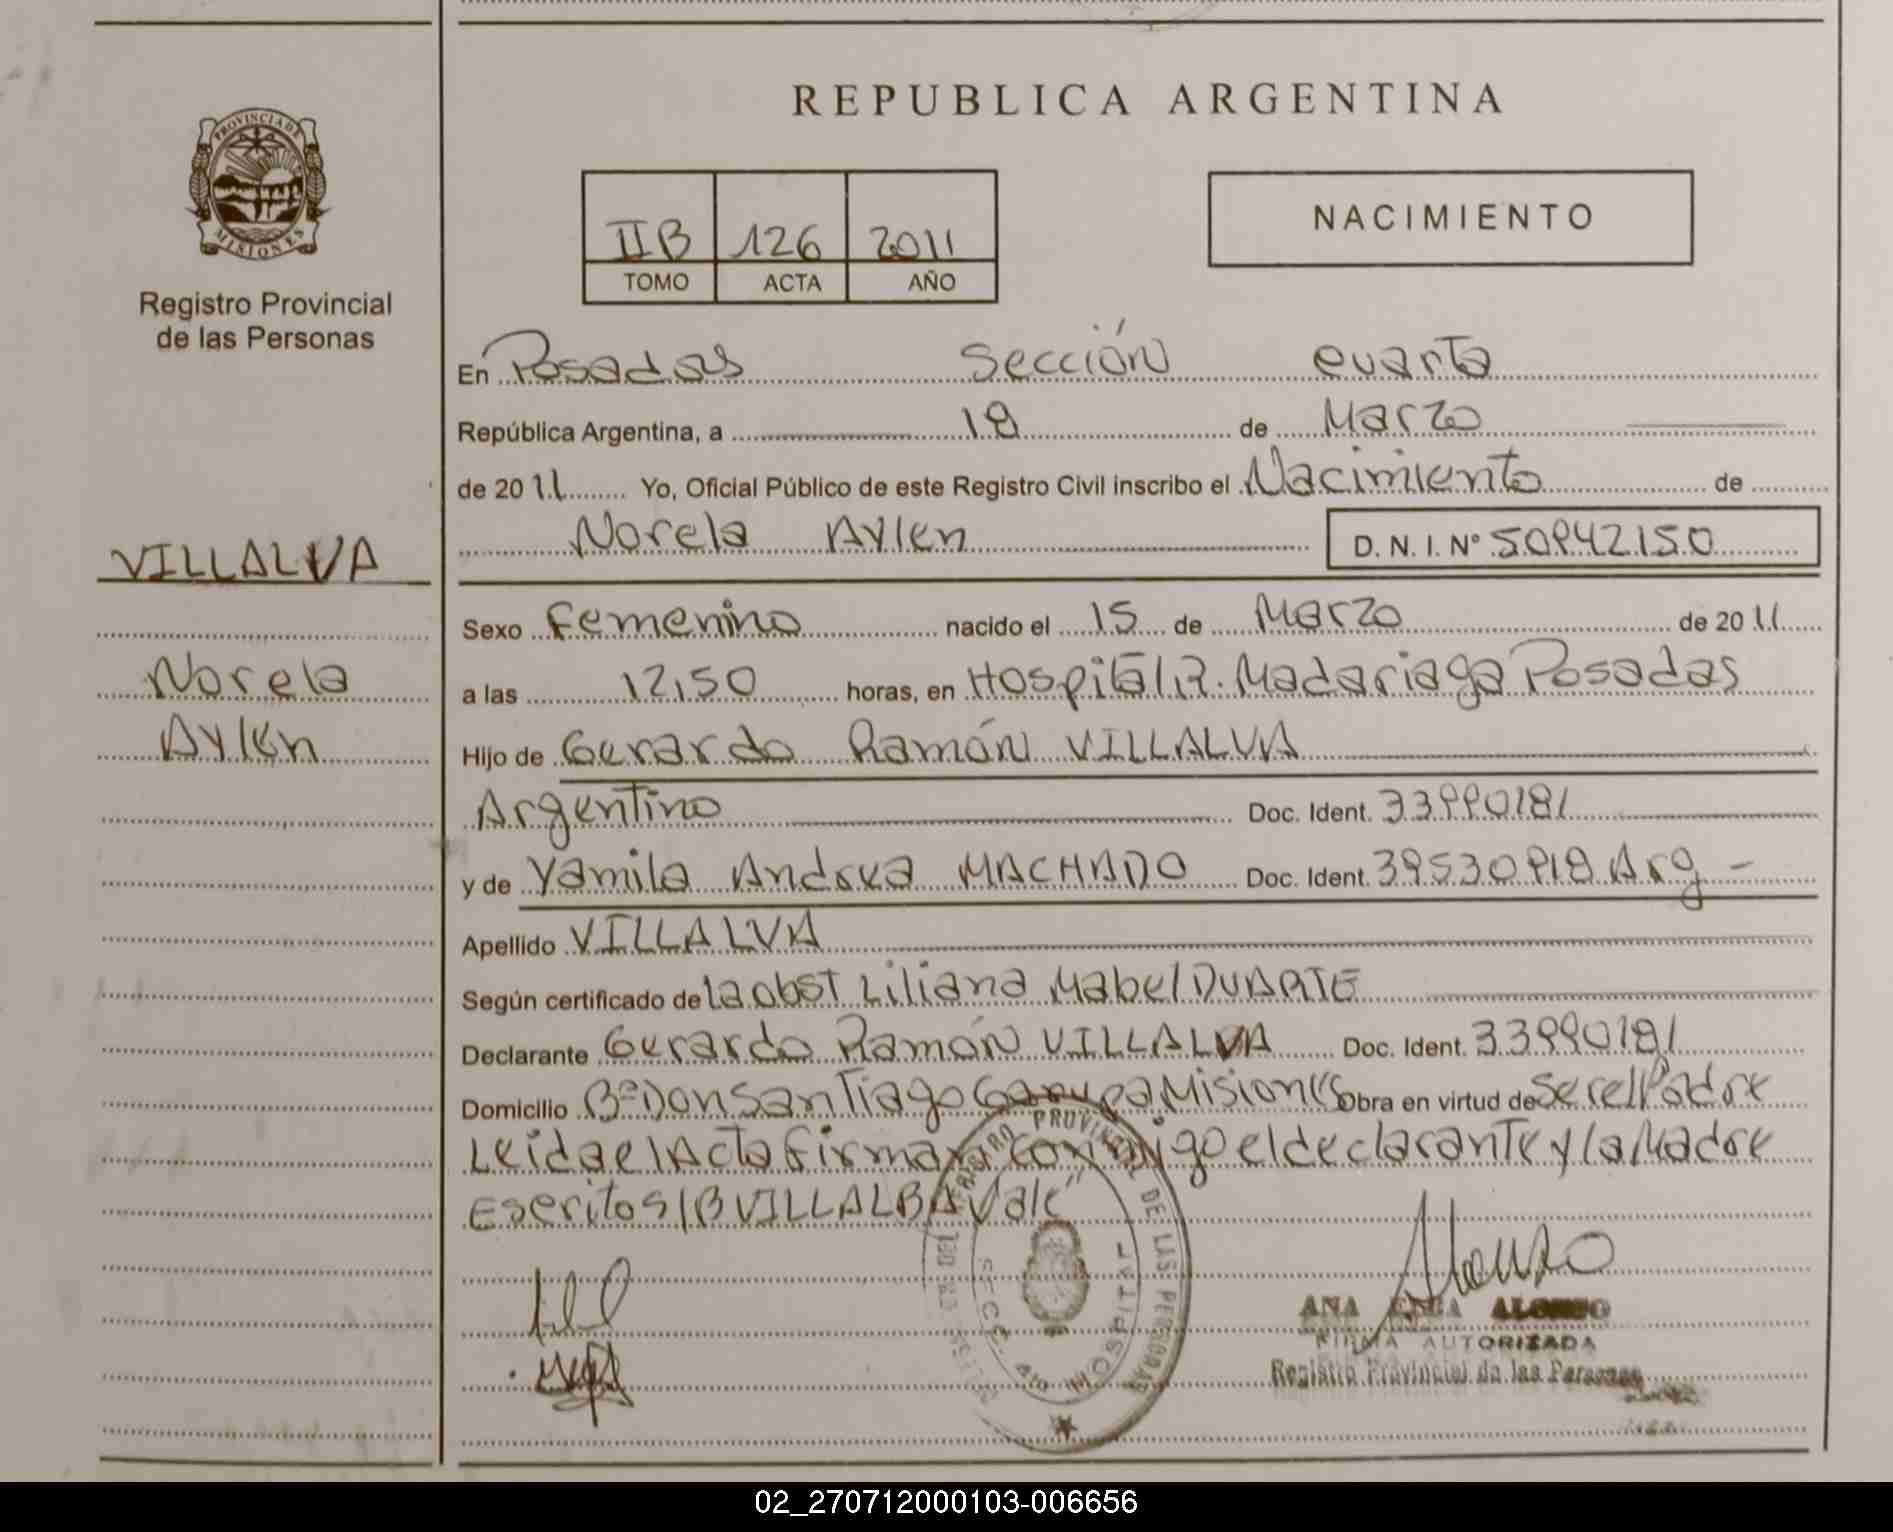 REPUBLICA ARGENTINA
PROVINCIA DE
MISIONES
Registro Provincial
de las Personas
IIB 126 2011
TOMO ACTA AÑO
NACIMIENTO
En Posadas Sección cuarta
República Argentina, a 18 de Marzo
de 20 11 Yo, Oficial Público de este Registro Civil inscribo el Nacimiento de
Norela Aylen D. N. I. Nº 50942150
VILLALVA
Norela
Aylen
Sexo Femenino nacido el 15 de Marzo de 20 11
a las 12,50 horas, en Hospital R. Madariaga Posadas
Hijo de Gerardo Ramón VILLALVA
Argentino Doc. Ident. 33990181
y de Yamila Andrea MACHADO Doc. Ident. 39530918 Arg -
Apellido VILLALVA
Según certificado de la obst Liliana Mabel DUARTE
Declarante Gerardo Ramón VILLALVA Doc. Ident. 33990181
Domicilio Bº Don Santiago Garupa Misiones Obra en virtud de Ser el Padre
Leida el Acta firman conmigo el declarante y la Madre
Escritos/B VILLALBA Vale"
REGISTRO PROVINCIAL DE LAS PERSONAS
HOSPITAL
ANA ALONSO
FIRMA AUTORIZADA
Registro Provincial de las Personas
02_270712000103-006656